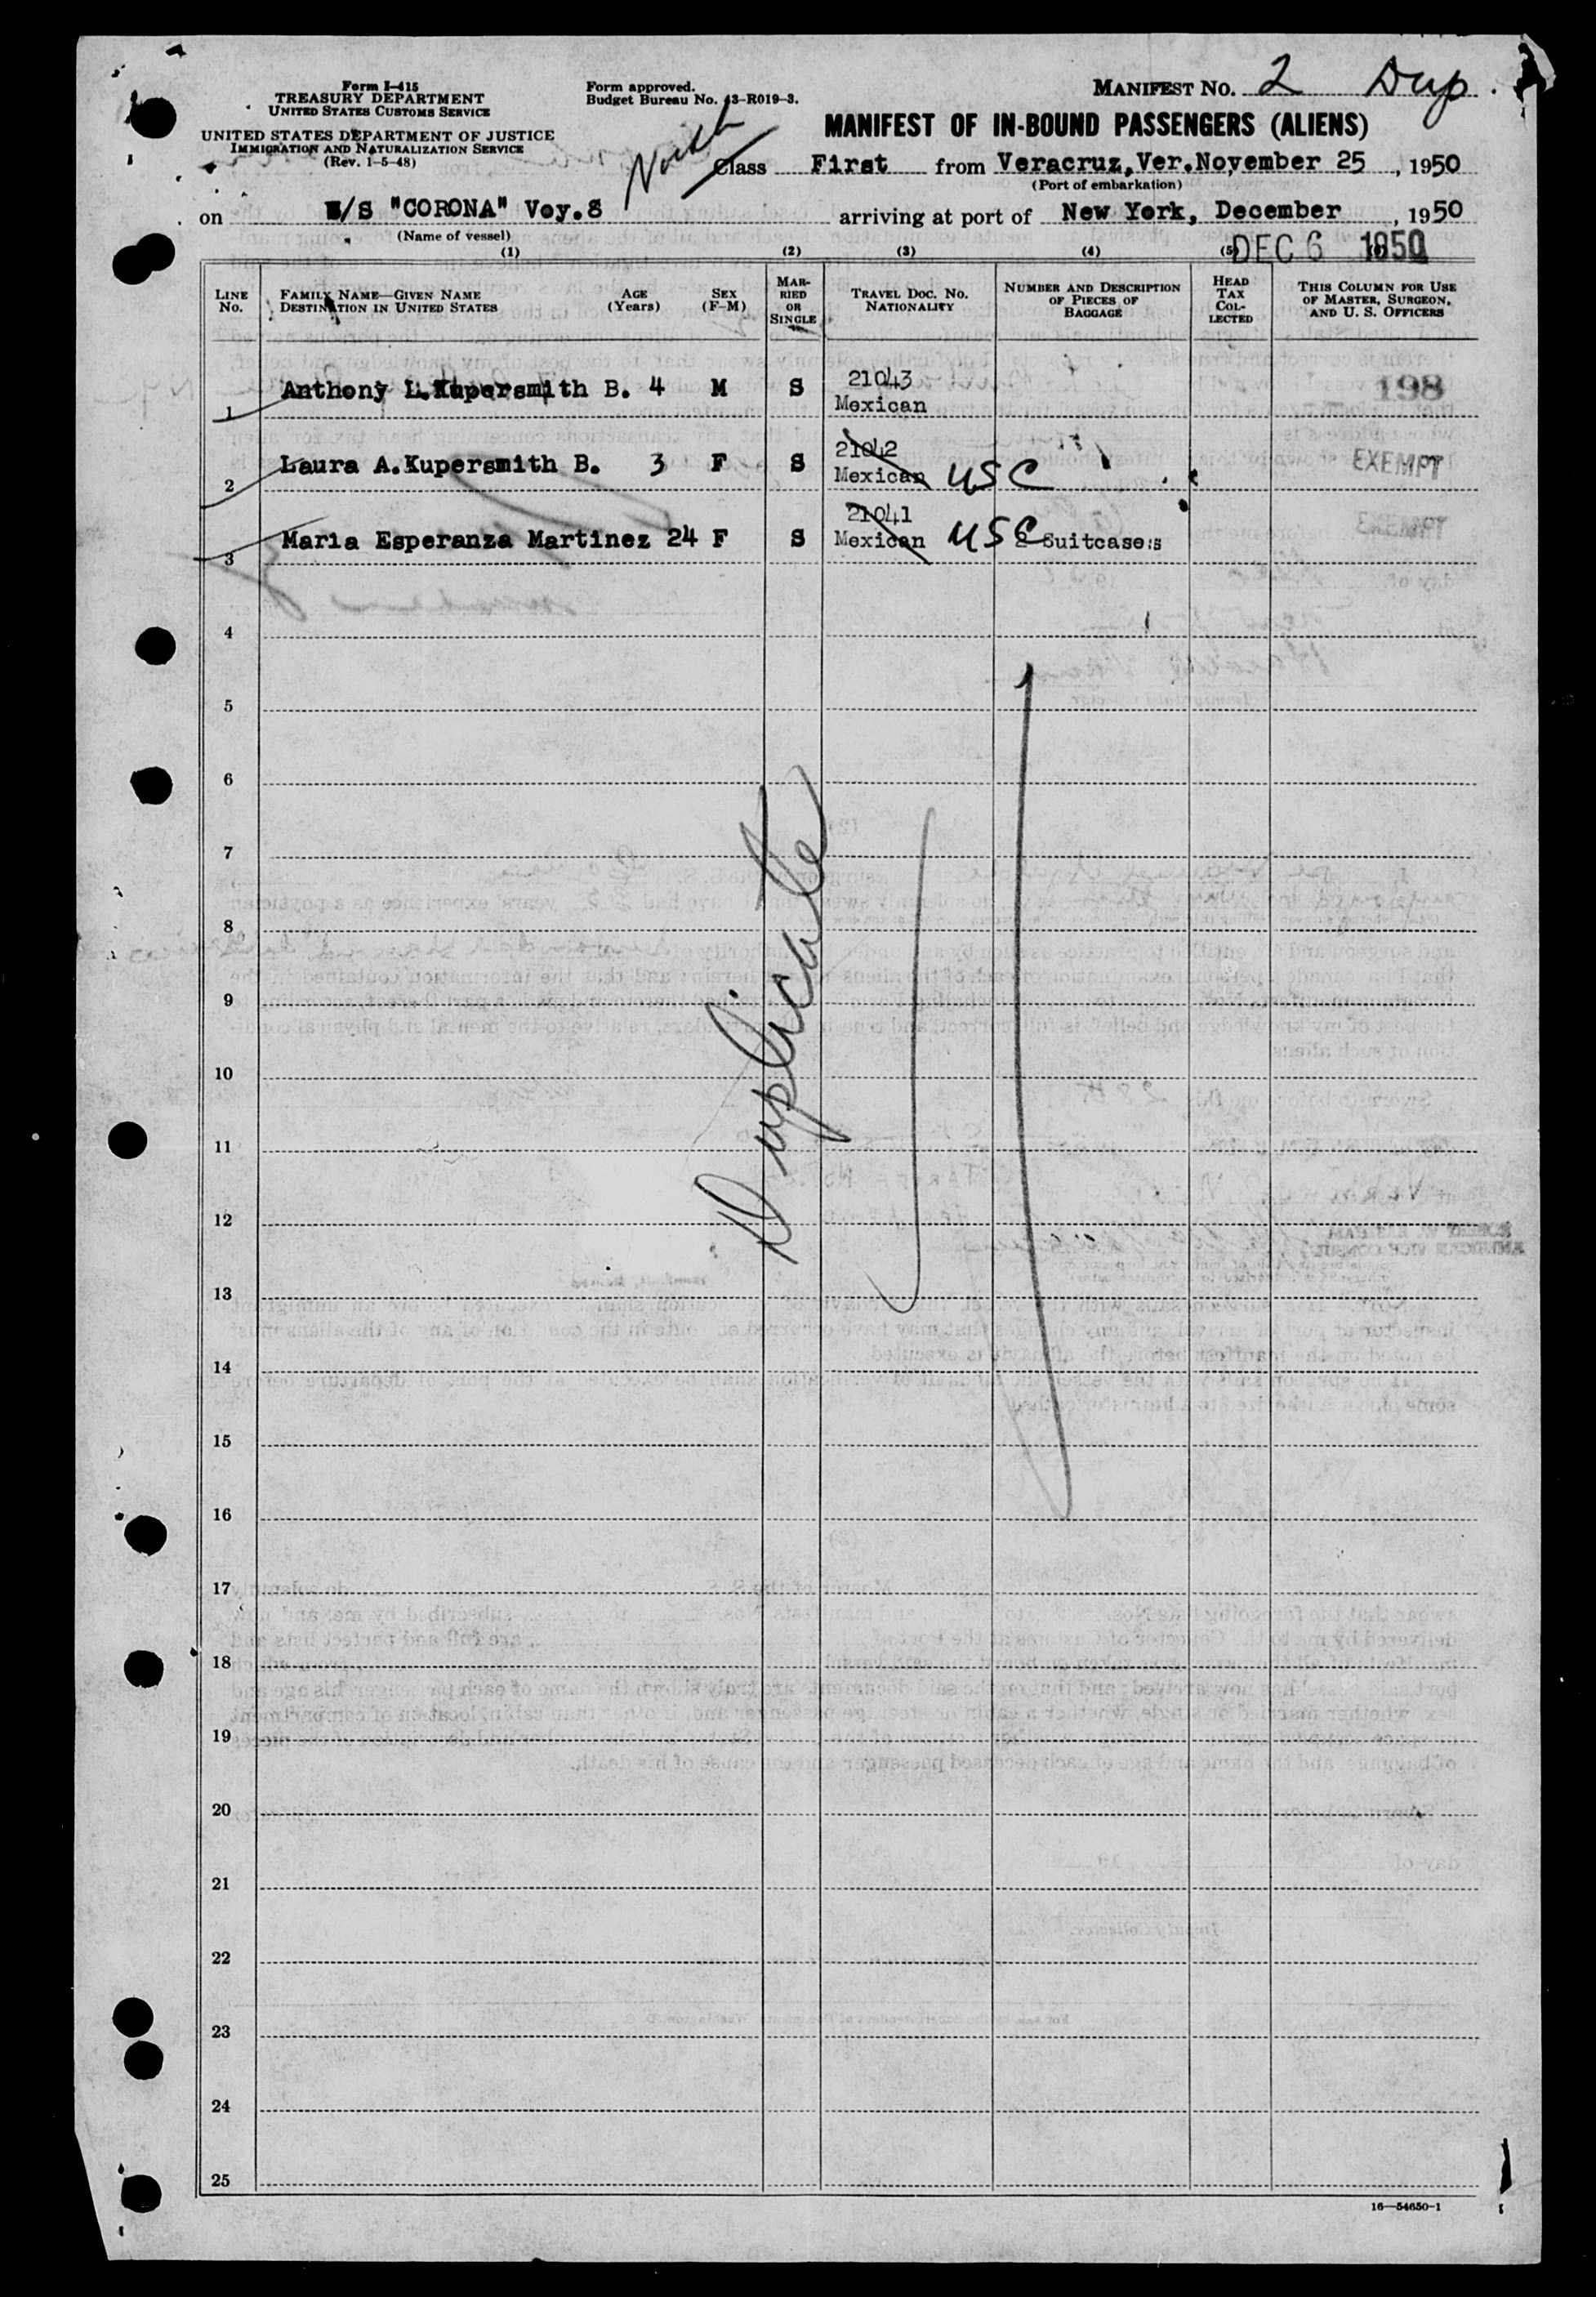 Form I-415
TREASURY DEPARTMENT
UNITED STATES CUSTOMS SERVICE
UNITED STATES DEPARTMENT OF JUSTICE
IMMIGRATION AND NATURALIZATION SERVICE
(Rev. 1-5-48)
Form approved.
Budget Bureau No. 43-R019-3.
MANIFEST NO. 2 Dup.
MANIFEST OF IN-BOUND PASSENGERS (ALIENS)
North
Class First from Veracruz,Ver.November 25, 1950
(Port of embarkation)
on M/S "CORONA" Voy.8 arriving at port of New York, December, 1950
(Name of vessel)
DEC 6 1950
(1) (2) (3) (4) (5)
LINE No. FAMILY NAME—GIVEN NAME DESTINATION IN UNITED STATES AGE (Years) SEX (F-M) MARRIED OR SINGLE TRAVEL DOC. NO. NATIONALITY NUMBER AND DESCRIPTION OF PIECES OF BAGGAGE HEAD TAX COLLECTED THIS COLUMN FOR USE OF MASTER, SURGEON, AND U. S. OFFICERS
1 Anthony L.Kupersmith B. 4 M S 21043 Mexican 198
2 Laura A.Kupersmith B. 3 F S 21042 Mexican USC EXEMPT
3 Maria Esperanza Martinez 24 F S 21041 Mexican USC 2 Suitcases EXEMPT
4
5
6
7
8
9
10
11
12
13
14
15
16
17
18
19
20
21
22
23
24
25
Duplicate
16—54650-1